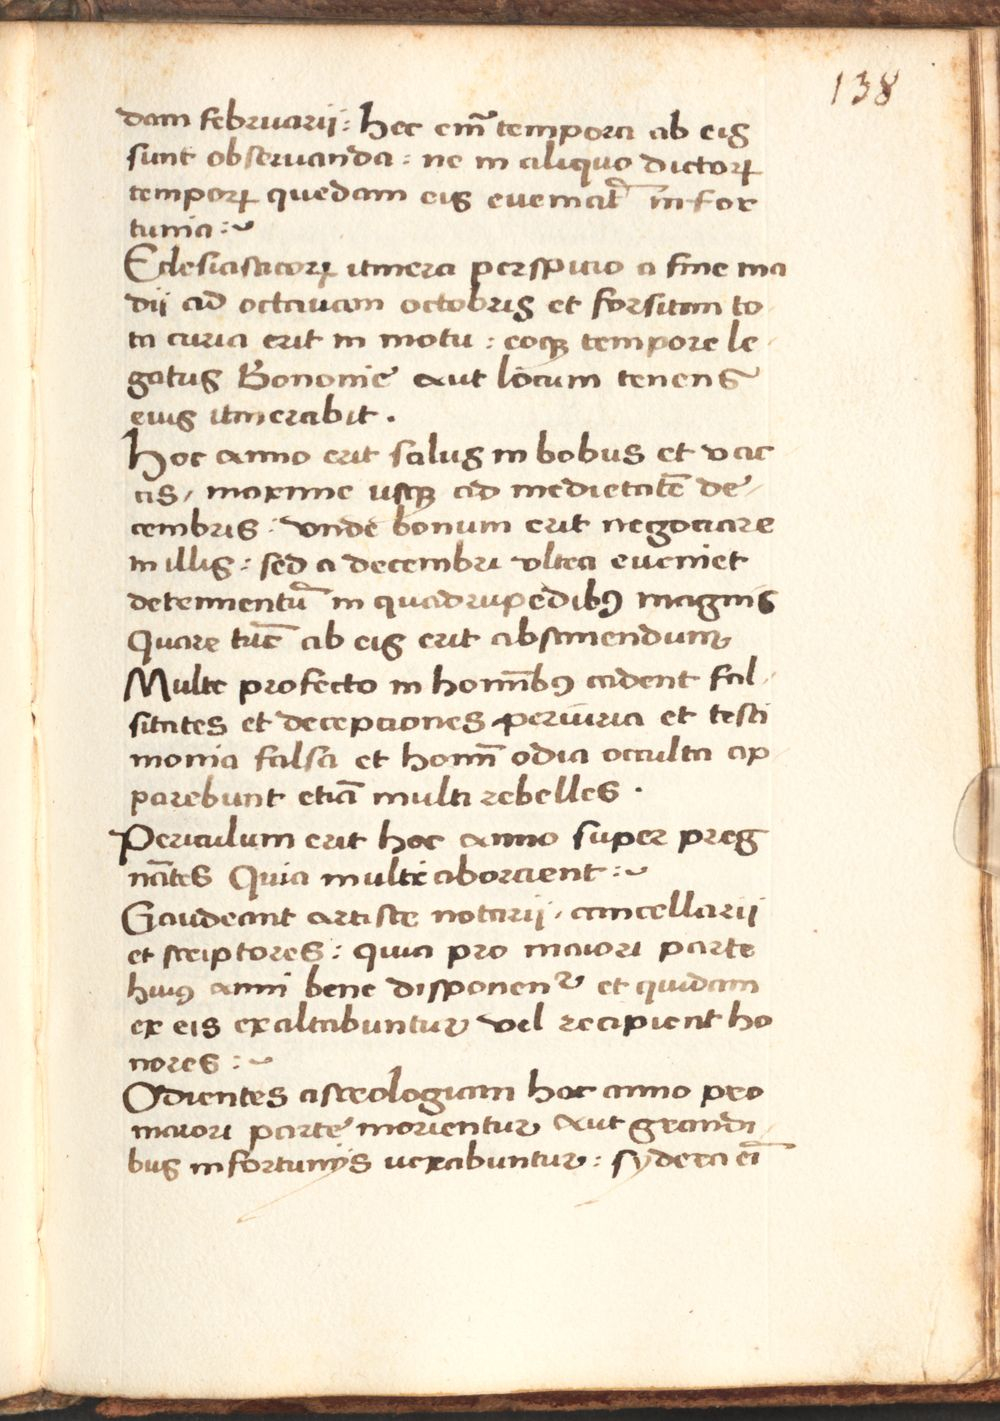 138
dam februarij: hec em̄ tempora ab eis
sunt obseruanda: ne in aliquo dictoꝝ
tempoꝝ quedam eis eueniat᷑ infor
tunia:~
Eclesiasticoꝝ itinera perspicio a fine ma
dij ad octauam octobris et forsitam to
ta curia erit in motu: eoqꝫ tempore le
gatus Bononie aut locum tenens
eius itinerabit.
Hoc anno erit salus in bobus et vac
cis, maxime usqꝫ ad medietatē de
cembris: vnde bonum erit negociare
in illis: sed a decembri vltra eueniet
detrimentū in quadrupedibꝰ magnis
Quare tūc ab eis erit abstinendum
Multe profecto in hominibꝰ cadent fal
sitates et deceptiones periuria et testi
monia falsa et homī odia occulta ap
parebunt etiā multi rebelles.
Periculum erit hoc anno super preg
nātes Quia multe aborcient:~
Gaudeant artiste notarij, cancellarii
et scriptores: quia pro maiori parte
huiꝰ anni bene disponenᷣ et quidam
ex eis exaltabuntur vel recipient ho
nores:~
Odientes astrologiam hoc anno pro
maiori parte morientur aut grandi
bus infortunijs uexabuntur: sydera eī